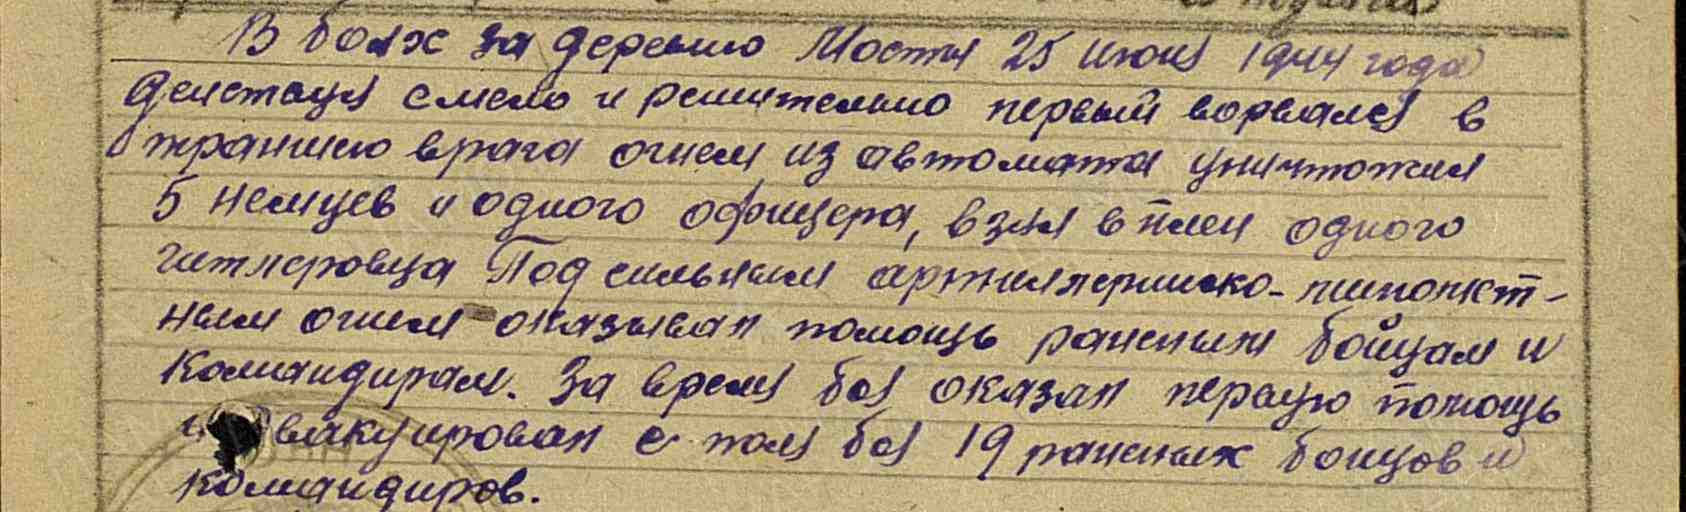 В боях за деревню Мосты 25 июня 1944 года
действуя смело и решительно первый ворвался в
траншею врага огнем из автомата уничтожил
5 немцев и одного офицера, взял в плен одного
гитлеровца Под сильным артиллерийско-пулемет-
ным огнем оказывал помощь раненым бойцам и
командирам. За время боя оказал первую помощь
и эвакуировал с поля боя 19 раненых бойцов и
командиров.